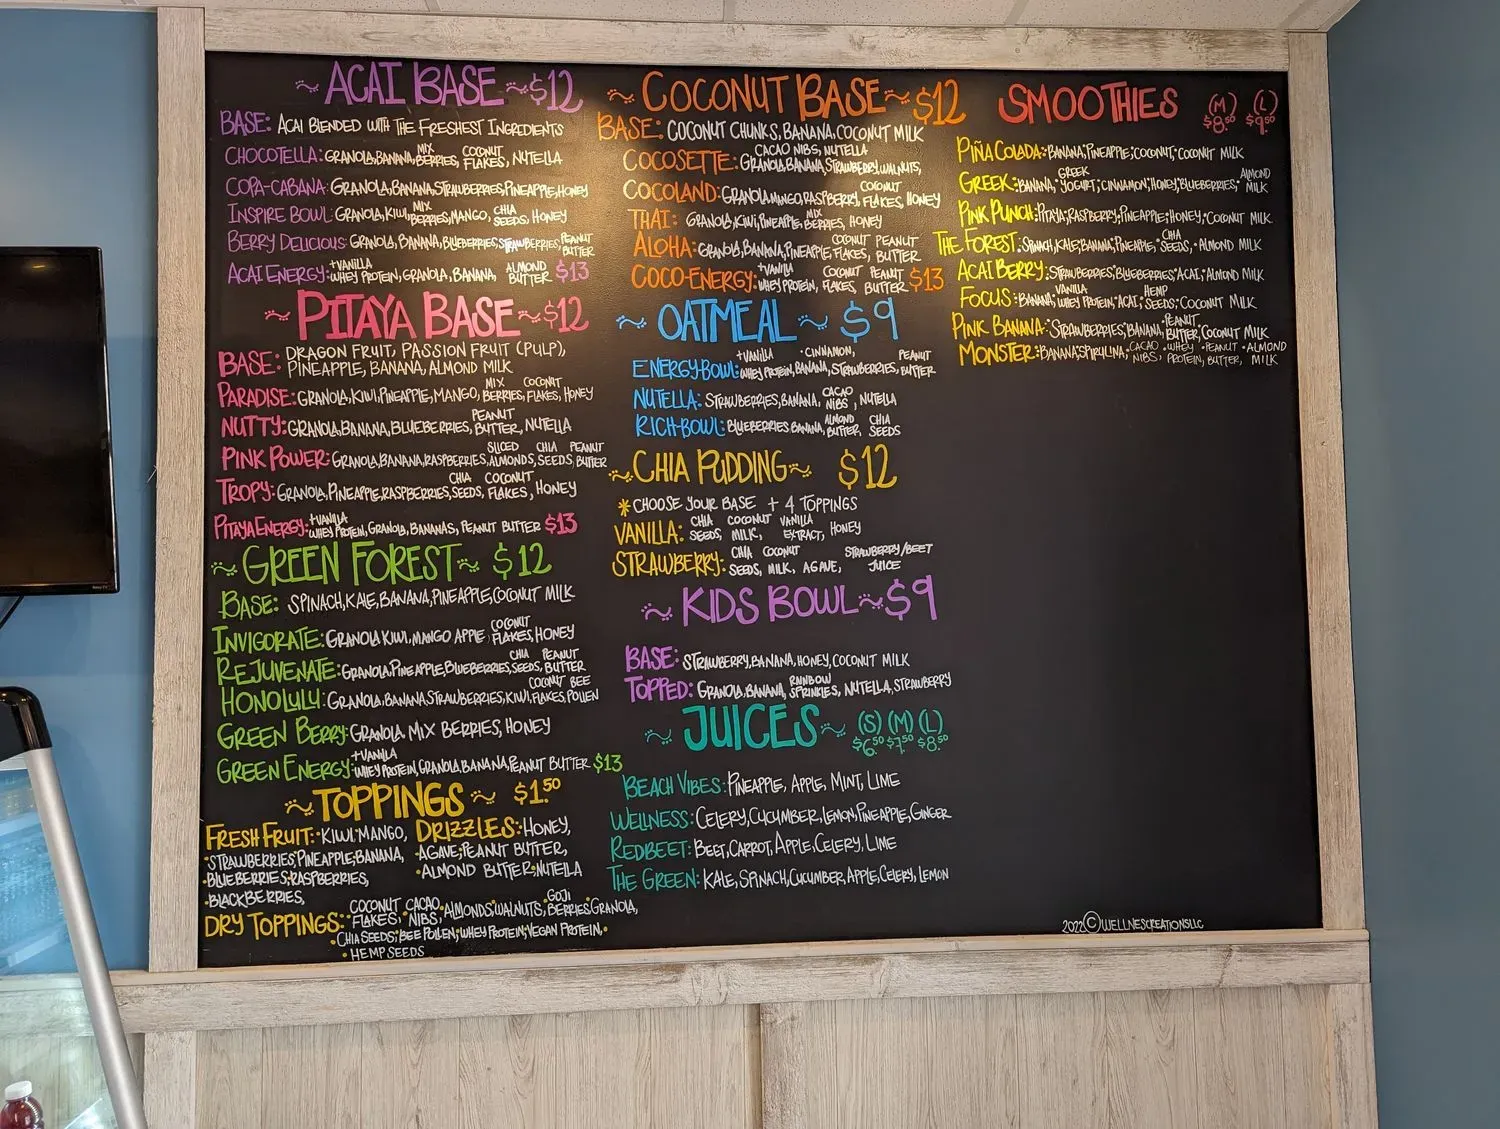 ~ ACAI BASE ~ $12
BASE: ACAI BLENDED WITH THE FRESHEST INGREDIENTS
CHOCOTELLA: GRANOLA, BANANA, MIX BERRIES, COCONUT FLAKES, NUTELLA
COPA-CABANA: GRANOLA, BANANA, STRAWBERRIES, PINEAPPLE, HONEY
INSPIRE BOWL: GRANOLA, KIWI, MIX BERRIES, MANGO, CHIA SEEDS, HONEY
BERRY DELICIOUS: GRANOLA, BANANA, BLUEBERRIES, STRAWBERRIES, PEANUT BUTTER
ACAI ENERGY: +VANILLA WHEY PROTEIN, GRANOLA, BANANA, ALMOND BUTTER $13
~ PITAYA BASE ~ $12
BASE: DRAGON FRUIT, PASSION FRUIT (PULP),
PINEAPPLE, BANANA, ALMOND MILK
PARADISE: GRANOLA, KIWI, PINEAPPLE, MANGO, MIX BERRIES, COCONUT FLAKES, HONEY
NUTTY: GRANOLA, BANANA, BLUEBERRIES, PEANUT BUTTER, NUTELLA
PINK POWER: GRANOLA, BANANA, RASPBERRIES, SLICED ALMONDS, CHIA SEEDS, PEANUT BUTTER
TROPY: GRANOLA, PINEAPPLE, RASPBERRIES, CHIA SEEDS, COCONUT FLAKES, HONEY
PITAYA ENERGY: +VANILLA WHEY PROTEIN, GRANOLA, BANANAS, PEANUT BUTTER $13
~ GREEN FOREST ~ $12
BASE: SPINACH, KALE, BANANA, PINEAPPLE, COCONUT MILK
INVIGORATE: GRANOLA KIWI, MANGO APPLE COCONUT FLAKES, HONEY
REJUVENATE: GRANOLA, PINEAPPLE, BLUEBERRIES, CHIA SEEDS, PEANUT BUTTER
HONOLULU: GRANOLA, BANANA, STRAWBERRIES, KIWI, COCONUT FLAKES, BEE POLLEN
GREEN BERRY: GRANOLA, MIX BERRIES, HONEY
GREEN ENERGY: +VANILLA WHEY PROTEIN, GRANOLA, BANANA, PEANUT BUTTER $13
~ TOPPINGS ~ $1.50
FRESH FRUIT: •KIWI•MANGO,
•STRAWBERRIES•PINEAPPLE•BANANA,
•BLUEBERRIES•RASPBERRIES,
•BLACKBERRIES,
DRIZZLES: •HONEY,
•AGAVE•PEANUT BUTTER,
•ALMOND BUTTER•NUTELLA
DRY TOPPINGS: •COCONUT FLAKES, •CACAO NIBS, •ALMONDS, •WALNUTS, •GOJI BERRIES, •GRANOLA,
•CHIA SEEDS, •BEE POLLEN, •WHEY PROTEIN, •VEGAN PROTEIN, •
•HEMP SEEDS
~ COCONUT BASE ~ $12
BASE: COCONUT CHUNKS, BANANA, COCONUT MILK
COCOSETTE: CACAO NIBS, NUTELLA GRANOLA, BANANA, STRAWBERRY, WALNUTS,
COCOLAND: GRANOLA, MANGO, RASPBERRY, COCONUT FLAKES, HONEY
THAI: GRANOLA, KIWI, PINEAPPLE, MIX BERRIES, HONEY
ALOHA: GRANOLA, BANANA, PINEAPPLE, COCONUT FLAKES, PEANUT BUTTER
COCO-ENERGY: +VANILLA WHEY PROTEIN, COCONUT FLAKES, PEANUT BUTTER $13
~ OATMEAL ~ $9
ENERGY-BOWL: +VANILLA WHEY PROTEIN, •CINNAMON, BANANA, STRAWBERRIES, PEANUT BUTTER
NUTELLA: STRAWBERRIES, BANANA, CACAO NIBS, NUTELLA
RICH-BOWL: BLUEBERRIES BANANA, ALMOND BUTTER, CHIA SEEDS
~ CHIA PUDDING ~ $12
* CHOOSE YOUR BASE + 4 TOPPINGS
VANILLA: CHIA SEEDS, COCONUT MILK, VANILLA EXTRACT, HONEY
STRAWBERRY: CHIA SEEDS, COCONUT MILK, AGAVE, STRAWBERRY/BEET JUICE
~ KIDS BOWL ~ $9
BASE: STRAWBERRY, BANANA, HONEY, COCONUT MILK
TOPPED: GRANOLA, BANANA, RAINBOW SPRINKLES, NUTELLA, STRAWBERRY
~ JUICES ~ (S) (M) (L)
$6.50 $7.50 $8.50
BEACH VIBES: PINEAPPLE, APPLE, MINT, LIME
WELLNESS: CELERY, CUCUMBER, LEMON, PINEAPPLE, GINGER
REDBEET: BEET, CARROT, APPLE, CELERY, LIME
THE GREEN: KALE, SPINACH, CUCUMBER, APPLE, CELERY, LEMON
SMOOTHIES (M) (L)
$8.50 $9.50
PIÑA COLADA: •BANANA, •PINEAPPLE, •COCONUT, •COCONUT MILK
GREEK: •BANANA, •GREEK YOGURT, •CINNAMON, •HONEY, •BLUEBERRIES, •ALMOND MILK
PINK PUNCH: •PITAYA, •RASPBERRY, •PINEAPPLE, •HONEY, •COCONUT MILK
THE FOREST: •SPINACH, •KALE, •BANANA, •PINEAPPLE, •CHIA SEEDS, •ALMOND MILK
ACAI BERRY: •STRAWBERRIES, •BLUEBERRIES, •ACAI, •ALMOND MILK
FOCUS: •BANANA, •VANILLA WHEY PROTEIN, •ACAI, •HEMP SEEDS, •COCONUT MILK
PINK BANANA: •STRAWBERRIES, •BANANA, •PEANUT BUTTER, •COCONUT MILK
MONSTER: •BANANA, •SPIRULINA, •CACAO NIBS, •WHEY PROTEIN, •PEANUT BUTTER, •ALMOND MILK
2022 © WELLNESCREATIONSLLC